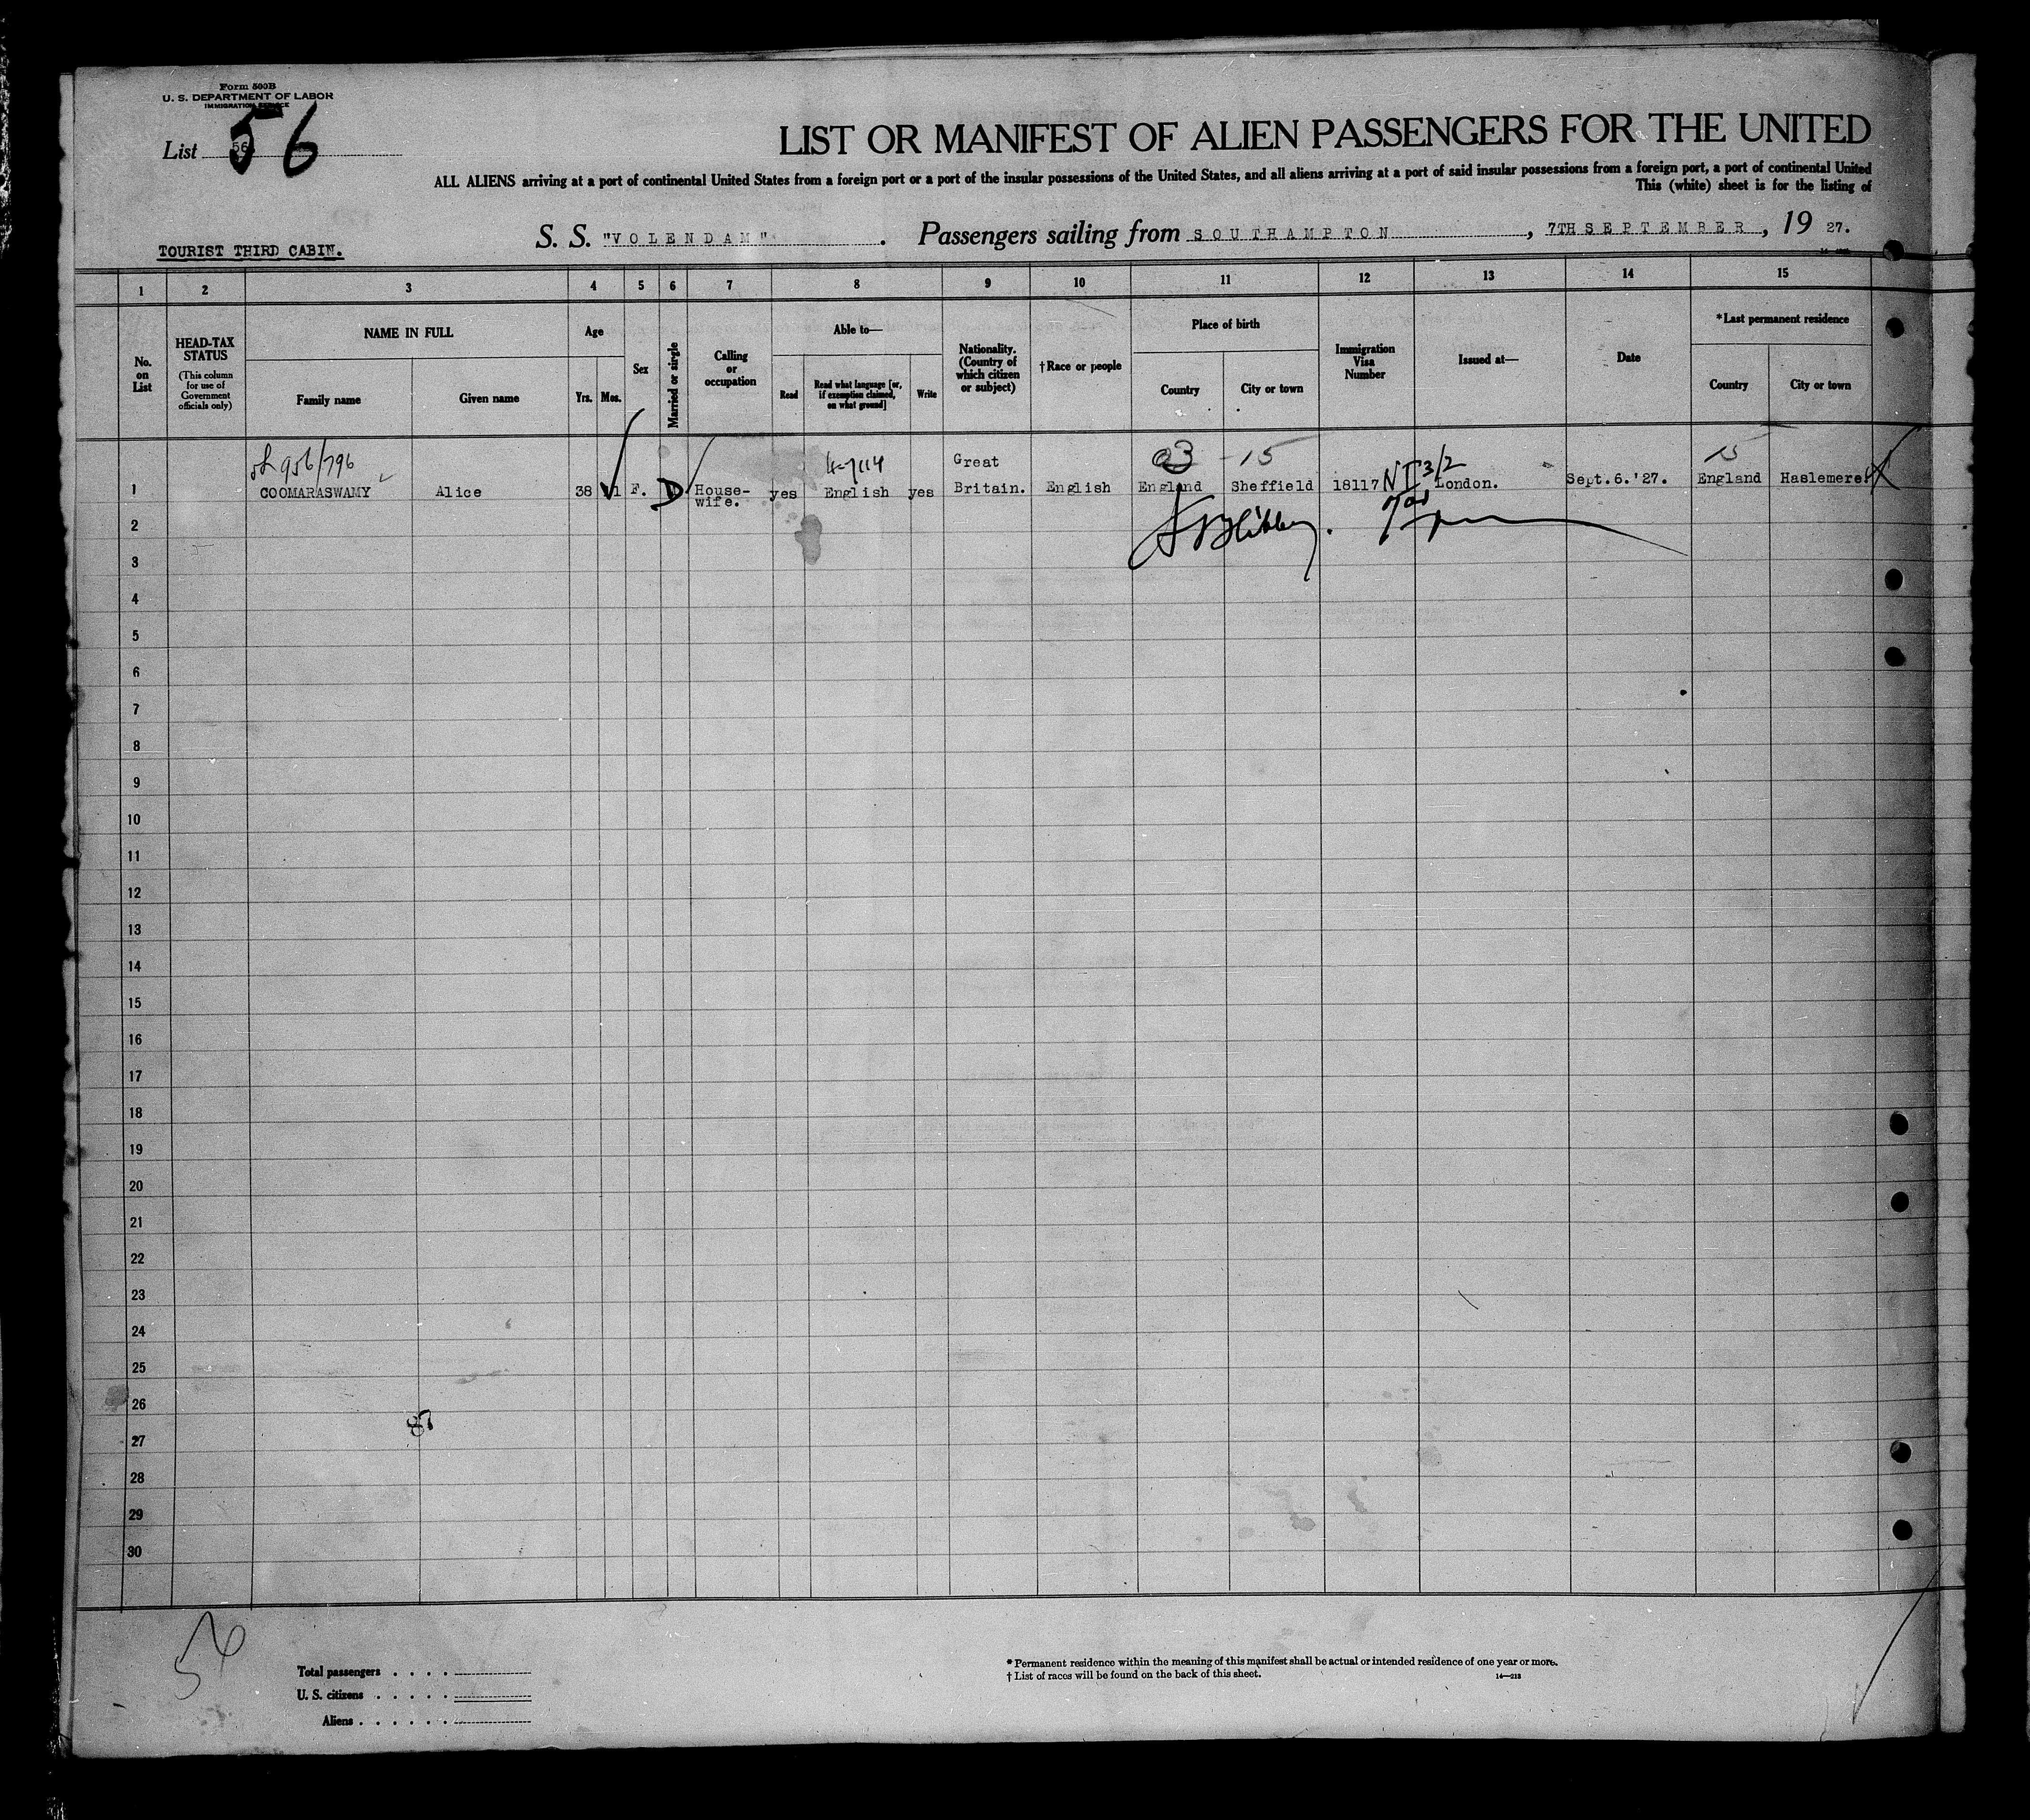 Form 500B
U. S. DEPARTMENT OF LABOR
IMMIGRATION SERVICE
List 56
56
LIST OR MANIFEST OF ALIEN PASSENGERS FOR THE UNITED
ALL ALIENS arriving at a port of continental United States from a foreign port or a port of the insular possessions of the United States, and all aliens arriving at a port of said insular possessions from a foreign port, a port of continental United
This (white) sheet is for the listing of
S. S. "VOLENDAM" . Passengers sailing from SOUTHAMPTON , 7TH SEPTEMBER , 19 27.
TOURIST THIRD CABIN.
1 2 3 4 5 6 7 8 9 10 11 12 13 14 15
No. on List
HEAD-TAX STATUS
(This column for use of Government officials only)
NAME IN FULL
Family name
Given name
Age
Yrs. Mos.
Sex
Married or single
Calling or occupation
Able to—
Read
Read what language [or, if exemption claimed, on what ground]
Write
Nationality. (Country of which citizen or subject)
†Race or people
Place of birth
Country
City or town
Immigration Visa Number
Issued at—
Date
*Last permanent residence
Country
City or town
956/796
03 - 15
15
1 COOMARASWAMY Alice 38 11 F. D House-wife. yes English yes Great Britain. English England Sheffield 18117 London. Sept.6.'27. England Haslemere
2
3
4
5
6
7
8
9
10
11
12
13
14
15
16
17
18
19
20
21
22
23
24
25
26
27
28
29
30
87
56
Total passengers . . . .
U. S. citizens . . . . .
Aliens . . . . . .
* Permanent residence within the meaning of this manifest shall be actual or intended residence of one year or more.
† List of races will be found on the back of this sheet.
14—213